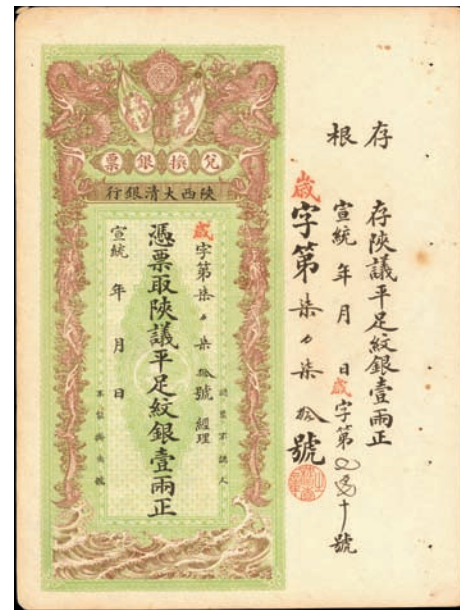 存根
存陝議平足紋銀壹兩正
宣統 年 月 日 歲字第 十號
歲字第柒 柒拾號
兌換銀票
陝西大清銀行
認票不認人
歲字第柒 柒拾號 經理
憑票取陝議平足紋銀壹兩正
宣統 年 月 日